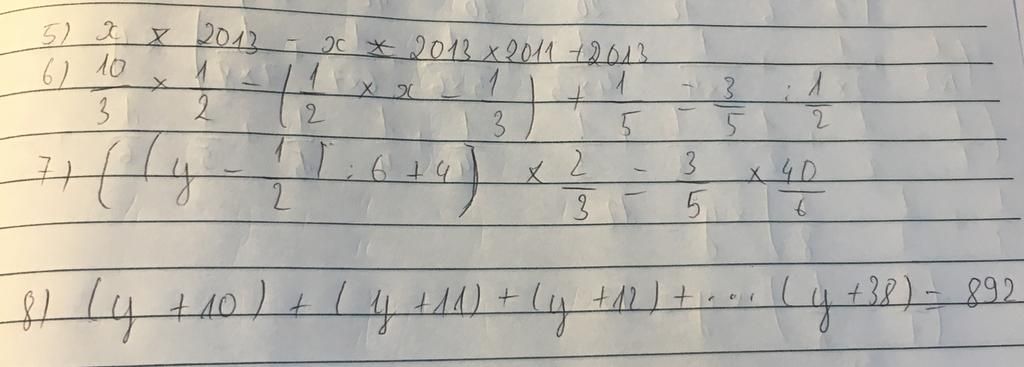 5) x × 2013 - x × 2013 × 2011 + 2013
6) 10/3 × 1/2 - (1/2 × x - 1/3) + 1/5 = 3/5 : 1/2
7) ((y - 1/2) : 6 + 4) × 2/3 = 3/5 × 40/6
8) (y + 10) + (y + 11) + (y + 12) + ... (y + 38) = 892